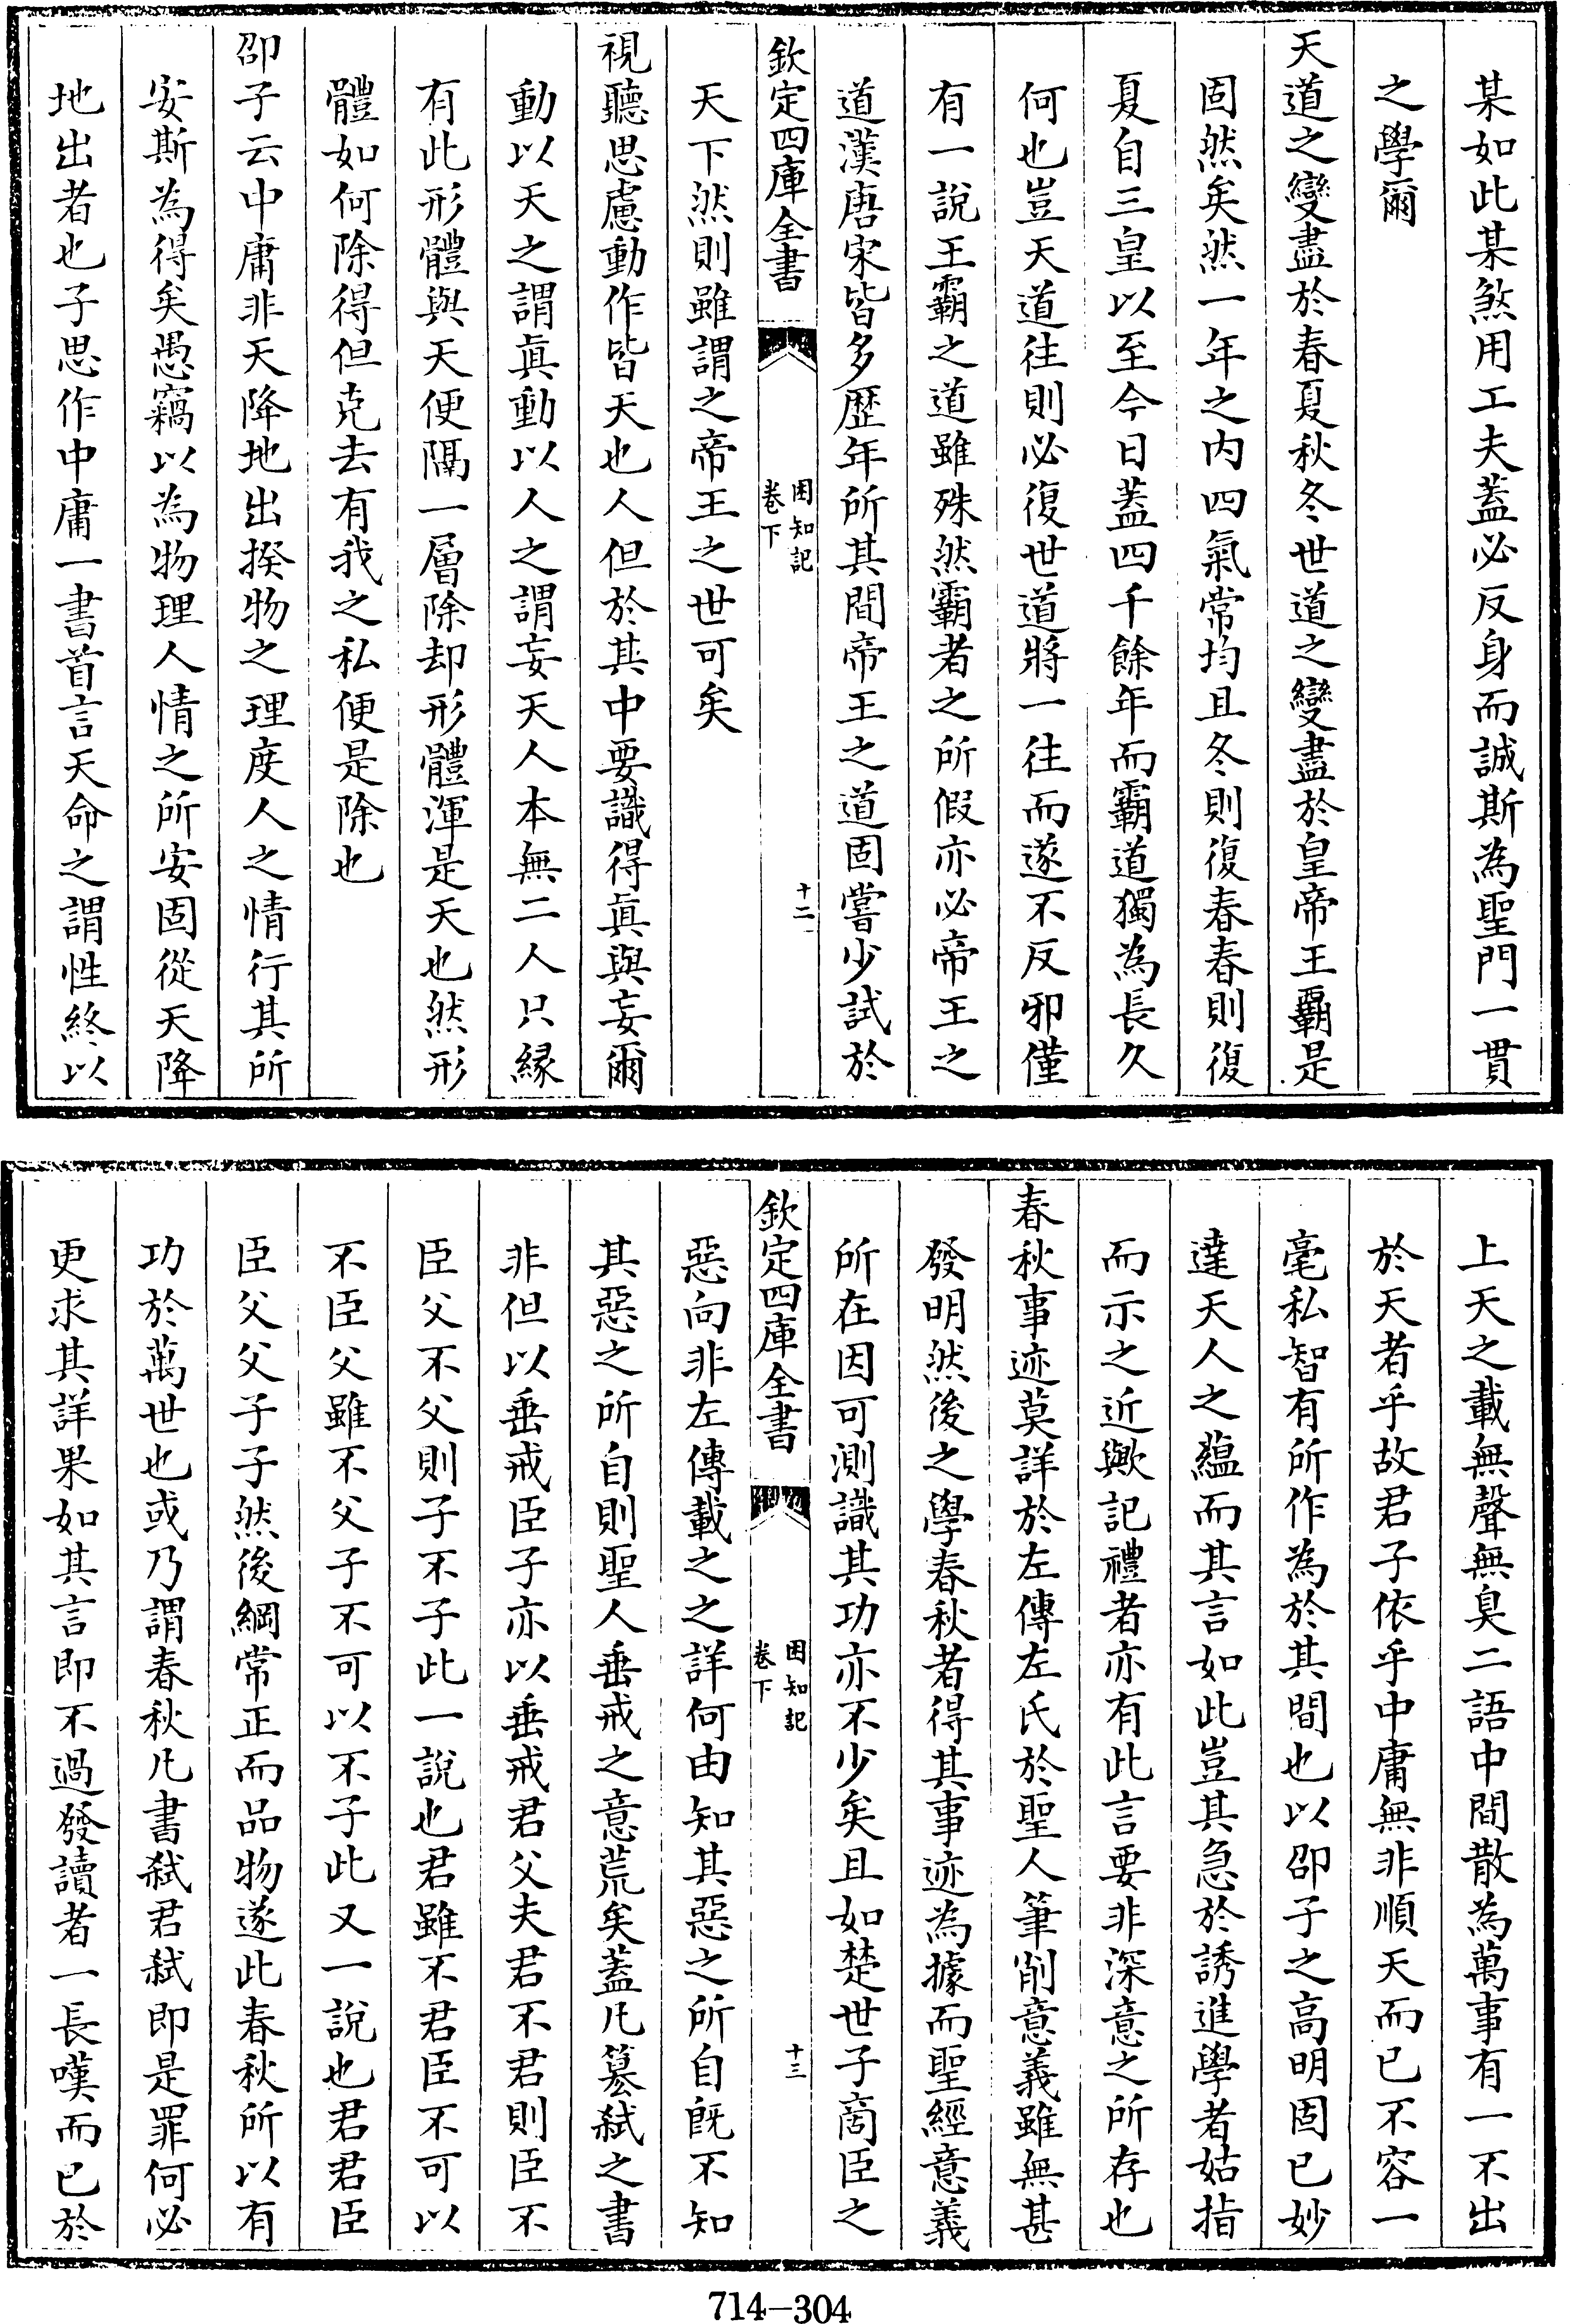 某如此某煞用工夫蓋必反身而誠斯為聖門一貫
之學爾
天道之變盡於春夏秋冬世道之變盡於皇帝王覇是
固然矣然一年之内四氣常均且冬則復春春則復
夏自三皇以至今日蓋四千餘年而霸道獨為長久
何也豈天道往則必復世道將一往而遂不反邪僅
有一說王霸之道雖殊然霸者之所假亦必帝王之
道漢唐宋皆多歴年所其間帝王之道固嘗少試於
欽定四庫全書
困知記
卷下
十二
天下然則雖謂之帝王之世可矣
視聽思慮動作皆天也人但於其中要識得真與妄爾
動以天之謂真動以人之謂妄天人本無二人只縁
有此形體與天便隔一層除却形體渾是天也然形
體如何除得但克去有我之私便是除也
邵子云中庸非天降地出揆物之理度人之情行其所
安斯為得矣愚竊以為物理人情之所安固從天降
地出者也子思作中庸一書首言天命之謂性終以
上天之載無聲無臭二語中間散為萬事有一不出
於天者乎故君子依乎中庸無非順天而已不容一
毫私智有所作為於其間也以邵子之高明固已妙
達天人之蘊而其言如此豈其急於誘進學者姑指
而示之近歟記禮者亦有此言要非深意之所存也
春秋事迹莫詳於左傳左氏於聖人筆削意義雖無甚
發明然後之學春秋者得其事迹為據而聖經意義
所在因可測識其功亦不少矣且如楚世子啇臣之
欽定四庫全書
困知記
卷下
十三
惡向非左傳載之之詳何由知其惡之所自既不知
其惡之所自則聖人垂戒之意荒矣蓋凡簒弑之書
非但以垂戒臣子亦以垂戒君父夫君不君則臣不
臣父不父則子不子此一說也君雖不君臣不可以
不臣父雖不父子不可以不子此又一說也君君臣
臣父父子子然後綱常正而品物遂此春秋所以有
功於萬世也或乃謂春秋凡書弑君弑即是罪何必
更求其詳果如其言即不過發讀者一長嘆而已於
714-304